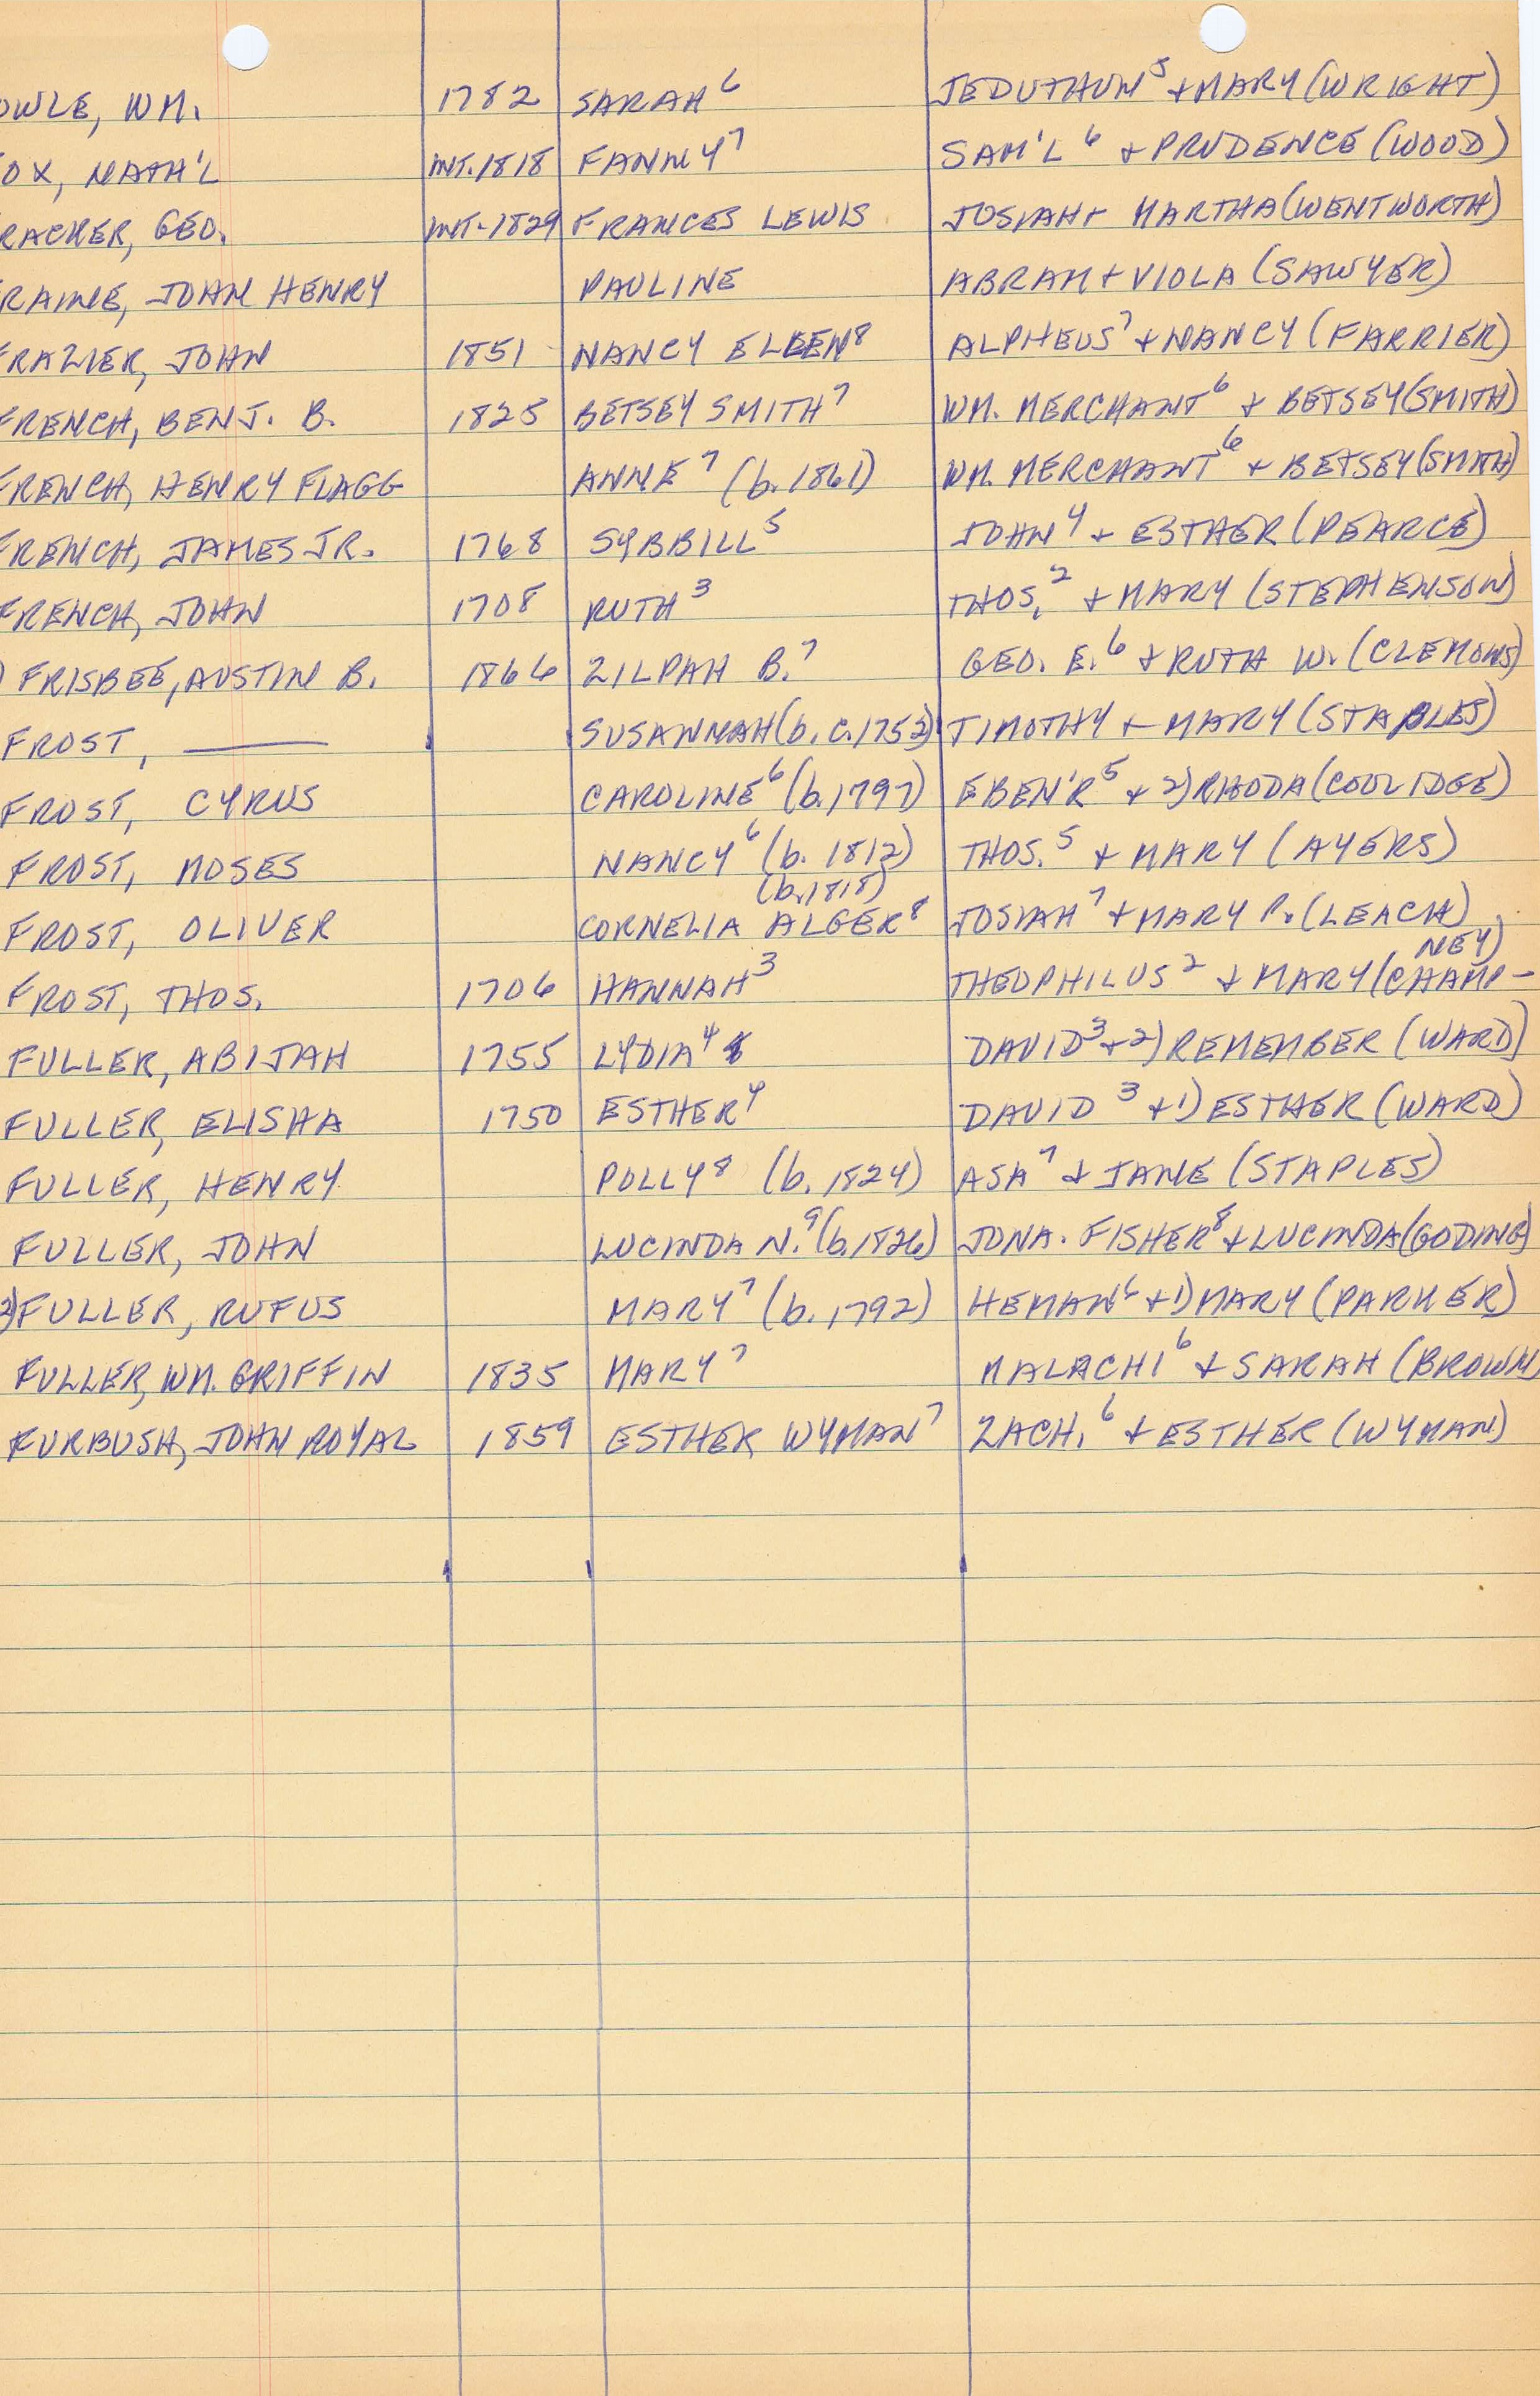 OWLE, WM. 1782 SARAH⁶ JEDUTHUN⁵ + MARY (WRIGHT)
OX, NATH'L INT. 1818 FANNY⁷ SAM'L⁶ + PRUDENCE (WOOD)
RACKER, GEO. INT. 1829 FRANCES LEWIS JOSIAH + MARTHA (WENTWORTH)
RAINE, JOHN HENRY PAULINE ABRAM + VIOLA (SAWYER)
FRAZIER, JOHN 1851 NANCY ELLEN⁸ ALPHEUS⁷ + NANCY (FARRIER)
FRENCH, BENJ. B. 1825 BETSEY SMITH⁷ WM. MERCHANT⁶ + BETSEY (SMITH)
FRENCH, HENRY FLAGG ANNE⁷ (b. 1861) WM. MERCHANT⁶ + BETSEY (SMITH)
FRENCH, JAMES JR. 1768 SYBBILL⁵ JOHN⁴ + ESTHER (PEARCE)
FRENCH, JOHN 1708 RUTH³ THOS.² + MARY (STEPHENSON)
) FRISBEE, AUSTIN B. 1866 ZILPAH B.⁷ GEO. E.⁶ + RUTH W. (CLEMONS)
FROST, —— SUSANNAH (b. c. 1752) TIMOTHY + MARY (STAPLES)
FROST, CYRUS CAROLINE⁶ (b. 1797) EBEN'R⁵ + 2) RHODA (COOLIDGE)
FROST, MOSES NANCY⁶ (b. 1812) THOS.⁵ + MARY (AYERS)
(b. 1818)
FROST, OLIVER CORNELIA ALGER⁸ JOSIAH⁷ + MARY P. (LEACH)
NEY)
FROST, THOS. 1706 HANNAH³ THEOPHILUS² + MARY (CHAMP-
FULLER, ABIJAH 1755 LYDIA⁴ DAVID³ + 2) REMEMBER (WARD)
FULLER, ELISHA 1750 ESTHER⁴ DAVID³ + 1) ESTHER (WARD)
FULLER, HENRY POLLY⁸ (b. 1824) ASA⁷ + JANE (STAPLES)
FULLER, JOHN LUCINDA N.⁹ (b. 1826) JONA. FISHER⁸ + LUCINDA (GODING)
2) FULLER, RUFUS MARY⁷ (b. 1792) HEMAN⁶ + 1) MARY (PARKER)
FULLER, WM. GRIFFIN 1835 MARY⁷ MALACHI⁶ + SARAH (BROWN)
FURBUSH, JOHN ROYAL 1859 ESTHER WYMAN⁷ ZACH.⁶ + ESTHER (WYMAN)